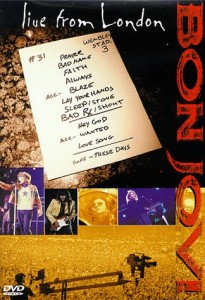 live from London
WEMBLEY
STAD.
3
#31
PRAYER
BAD NAME
FAITH
ALWAYS
ACC- BLAZE
LAY YOUR HANDS
SLEEP/STONE
BAD RX/SHOUT
HEY GOD
ACC- WANTED
LOVE SONG
THESE DAYS
BON JOVI
DVD
VIDEO